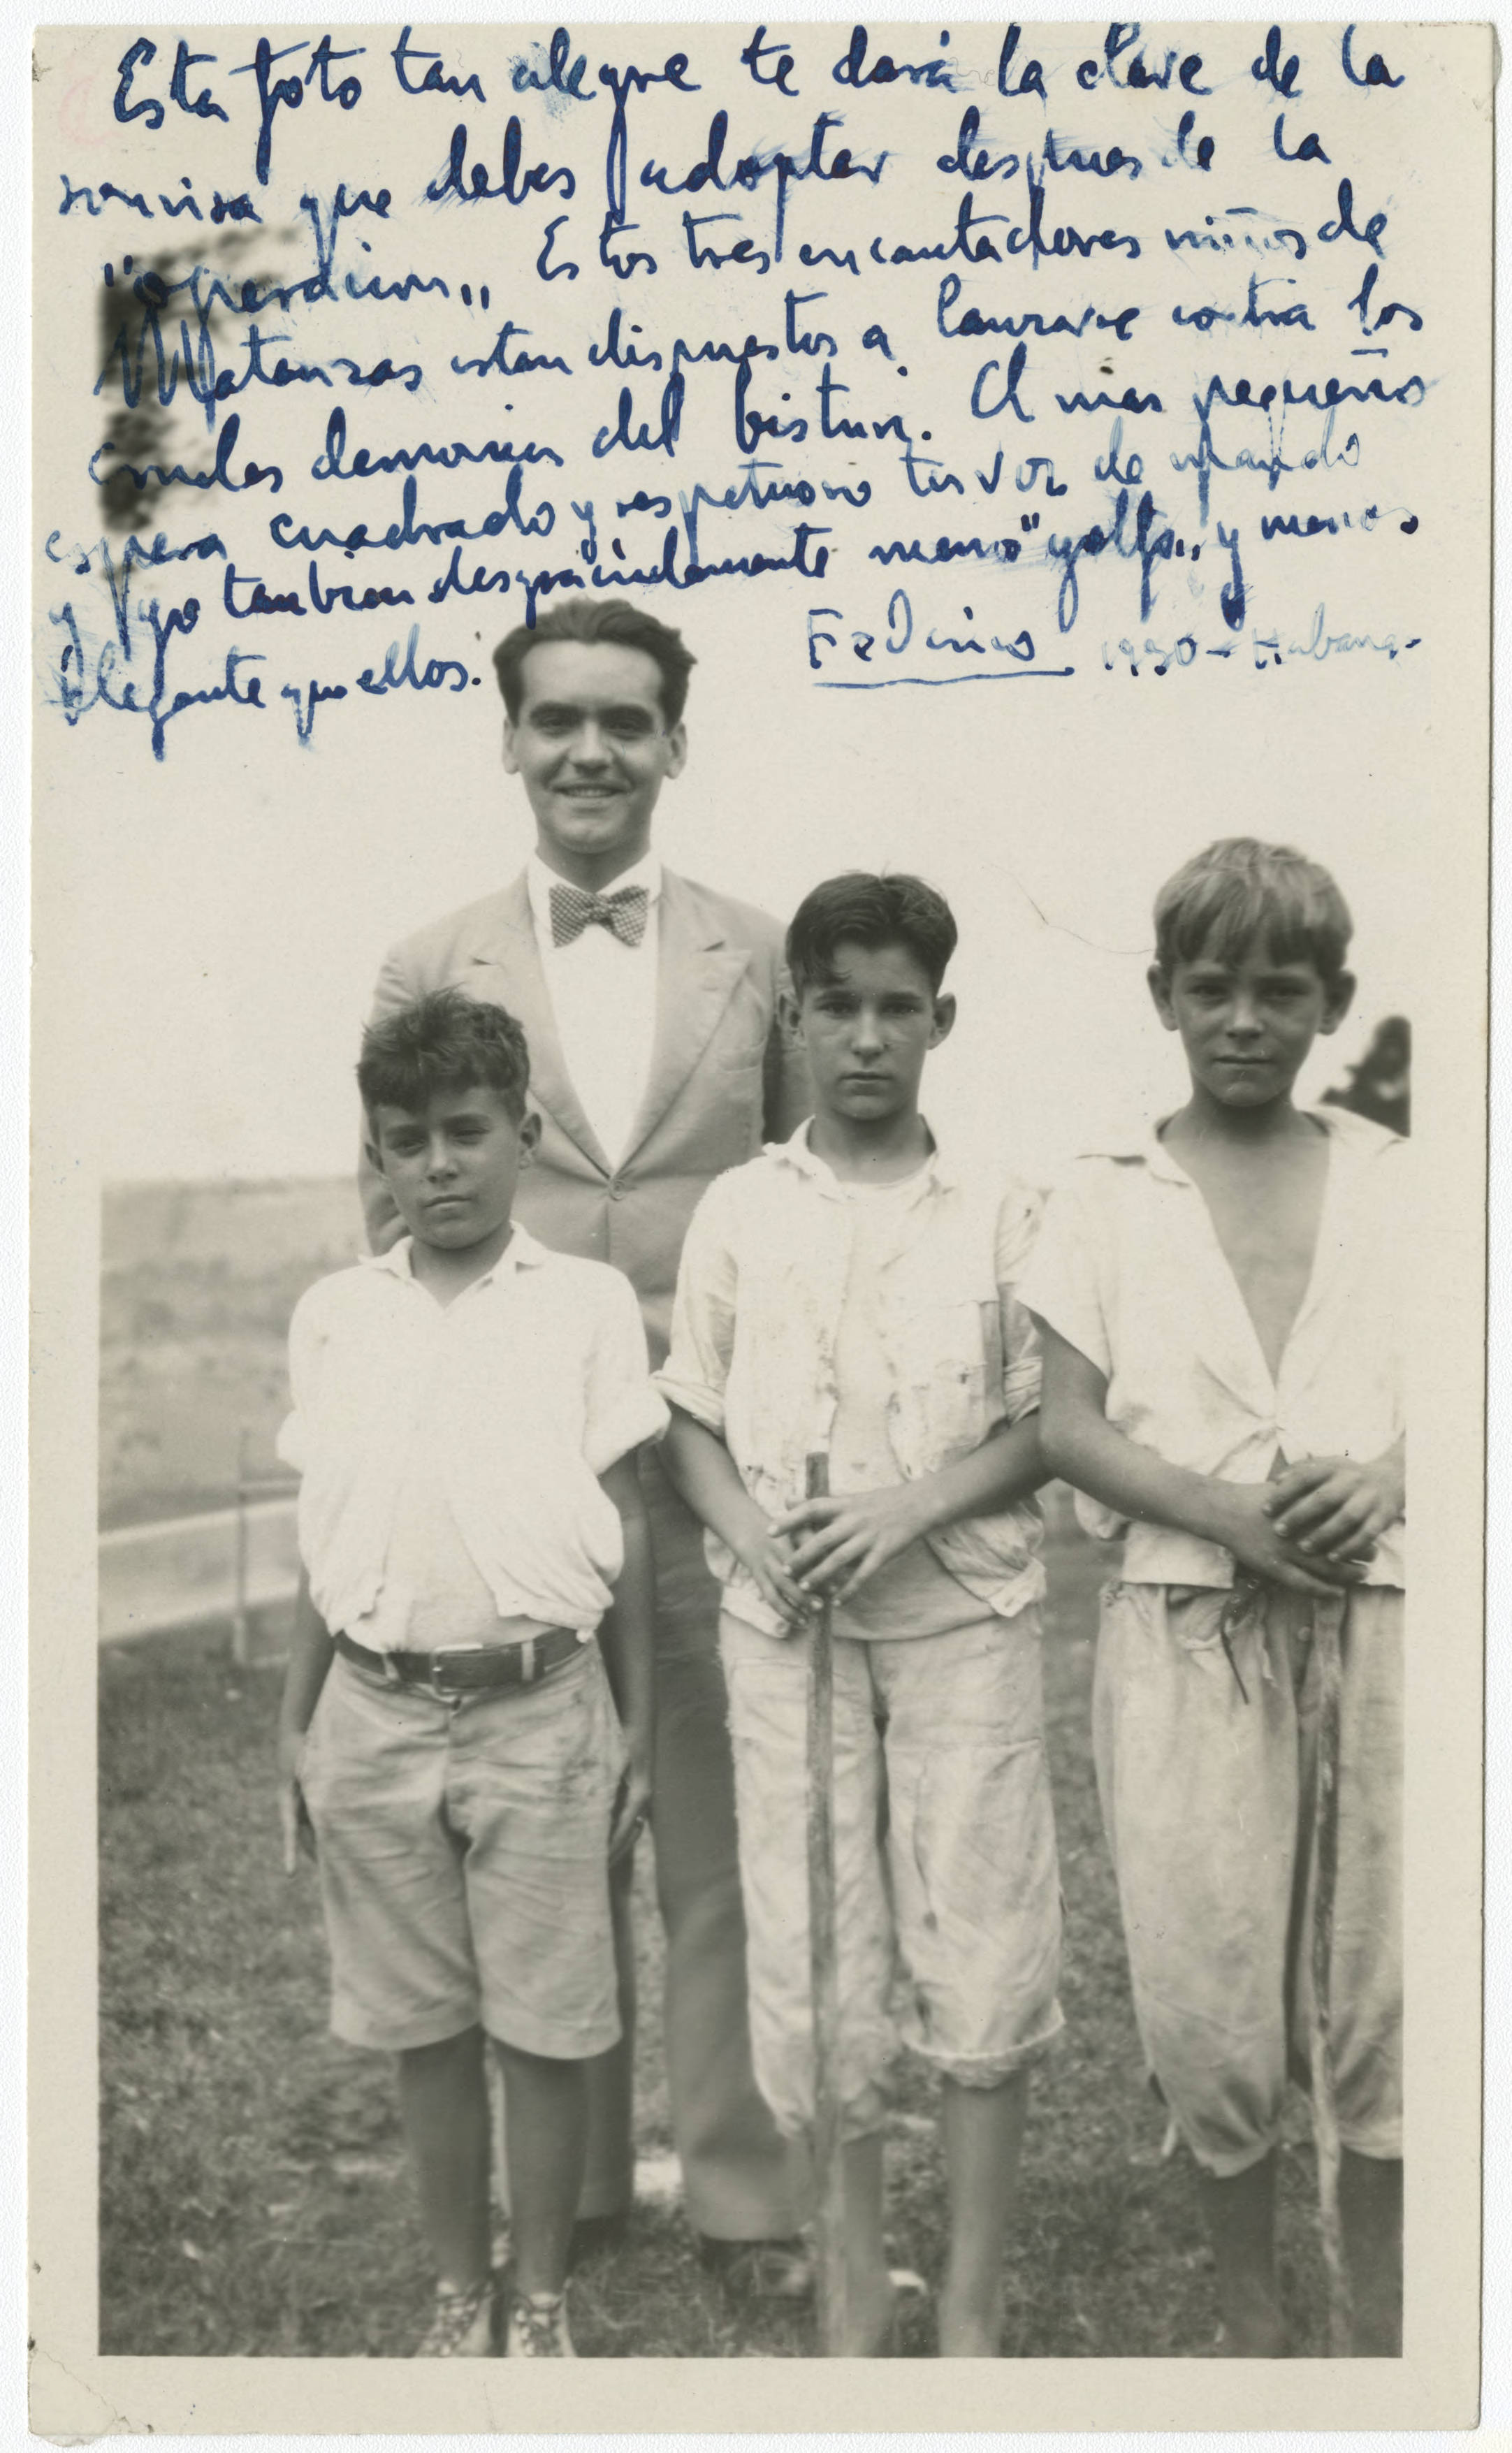 Esta foto tan alegre te dará la clave de la
sonrisa que debes adoptar despues de la
"operacion" Estos tres encantadores niños de
Matanzas estan dispuestos a lanzarse contra los
crueles demonios del bisturi. El mas pequeño
espera cuadrado y respetuoso tu voz de mando
y yo tanbien desgraciadamente menos "golfo" y menos
elegante que ellos.
Federico 1930 - Habana -